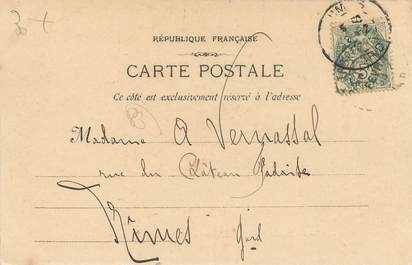 RÉPUBLIQUE FRANÇAISE
CARTE POSTALE
Ce côté est exclusivement réservé à l'adresse
Madame A Vernassal
rue du Château Fadaise
Nîmes Gard